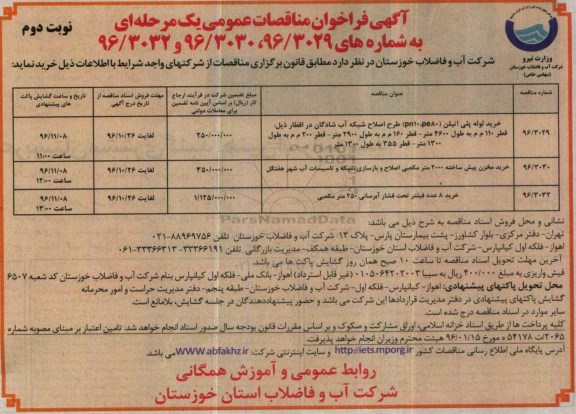 آگهی فراخوان مناقصات عمومی یک مرحله‌ای
به شماره های ۹۶/۳۰۲۹، ۹۶/۳۰۳۰ و ۹۶/۳۰۳۲
نوبت دوم
وزارت نیرو
شرکت آب و فاضلاب خوزستان
(سهامی خاص)
شرکت آب و فاضلاب خوزستان در نظر دارد مطابق قانون برگزاری مناقصات از شرکتهای واجد شرایط با اطلاعات ذیل خرید نماید:
شماره مناقصه
عنوان مناقصه
مبلغ تضمین شرکت در فرآیند ارجاع کار (ریال) بر اساس آیین نامه تضمین برای معاملات دولتی
مهلت فروش اسناد مناقصه از تاریخ درج آگهی
تاریخ و ساعت گشایش پاکت های پیشنهادی
۹۶/۳۰۲۹
خرید لوله پلی اتیلن (pn10,pe80) طرح اصلاح شبکه آب شادگان در اقطار ذیل:
قطر ۱۱۰ م م به طول ۴۶۰۰ متر - قطر ۱۶۰ م م به طول ۲۹۰۰ متر - قطر ۲۰۰ م م به طول
۱۳۰۰ متر - قطر ۳۵۵ به طول ۱۳۰۰ متر
۲۵۰/۰۰۰/۰۰۰
لغایت ۹۶/۱۰/۲۶
۹۶/۱۱/۰۸
ساعت ۱۱:۰۰
۹۶/۳۰۳۰
خرید مخزن پیش ساخته ۲۰۰۰ متر مکعبی اصلاح و بازسازی شبکه و تاسیسات آب شهر هفتگل
۳۵۰/۰۰۰/۰۰۰
لغایت ۹۶/۱۰/۲۶
۹۶/۱۱/۰۸
ساعت ۱۲:۰۰
۹۶/۳۰۳۲
خرید ۸ عدد فیلتر تحت فشار آبرسانی ۲۵۰ متر مکعبی
۱/۱۲۵/۰۰۰/۰۰۰
لغایت ۹۶/۱۰/۲۶
۹۶/۱۱/۰۸
ساعت ۱۳:۰۰
ParsNamadData
نشانی و محل فروش اسناد مناقصه به شرح ذیل می باشد:
تهران- دفتر مرکزی- بلوار کشاورز- پشت بیمارستان پارس- پلاک ۱۳- شرکت آب و فاضلاب خوزستان تلفن ۸۸۹۶۹۷۵۶-۰۲۱
اهواز- فلکه اول کیانپارس- شرکت آب و فاضلاب استان خوزستان- طبقه همکف- مدیریت بازرگانی تلفن ۳۳۳۶۶۱۹۱-۳۳۳۶۶۳۱۳-۰۶۱
آخرین مهلت تحویل اسناد مناقصه تا ساعت ۱۰ صبح همان روز گشایش پاکت ها می باشد.
فیش واریزی به مبلغ ۴۰۰/۰۰۰ ریال به سیبا ۰۱۰۵۰۶۴۲۰۲۰۰۳ (غیر قابل استرداد) اهواز- بانک ملی- فلکه اول کیانپارس بنام شرکت آب و فاضلاب استان خوزستان کد شعبه ۶۵۰۷
محل تحویل پاکتهای پیشنهادی: اهواز- کیانپارس- فلکه اول- شرکت آب و فاضلاب استان خوزستان- طبقه پنجم- دفتر مدیریت حراست و امور محرمانه
گشایش پاکتهای پیشنهادی در دفتر مدیریت قراردادها این شرکت می باشد و حضور پیشنهاددهندگان در جلسه گشایش، بلامانع است.
سایر موارد در اسناد مناقصه درج شده است.
کلیه پرداخت ها از طریق اسناد خزانه اسلامی، اوراق مشارکت و صکوک و بر اساس مقررات قانون بودجه سال صدور اسناد انجام خواهد شد. تامین اعتبار بر مبنای مصوبه شماره
مورخ ۹۶/۰۱/۱۵ هیئت محترم وزیران انجام خواهد پذیرفت.
آدرس پایگاه ملی اطلاع رسانی مناقصات کشور http://iets.mporg.ir و سایت اینترنتی شرکت: www.abfakhz.ir می باشد.
روابط عمومی و آموزش همگانی
شرکت آب و فاضلاب استان خوزستان